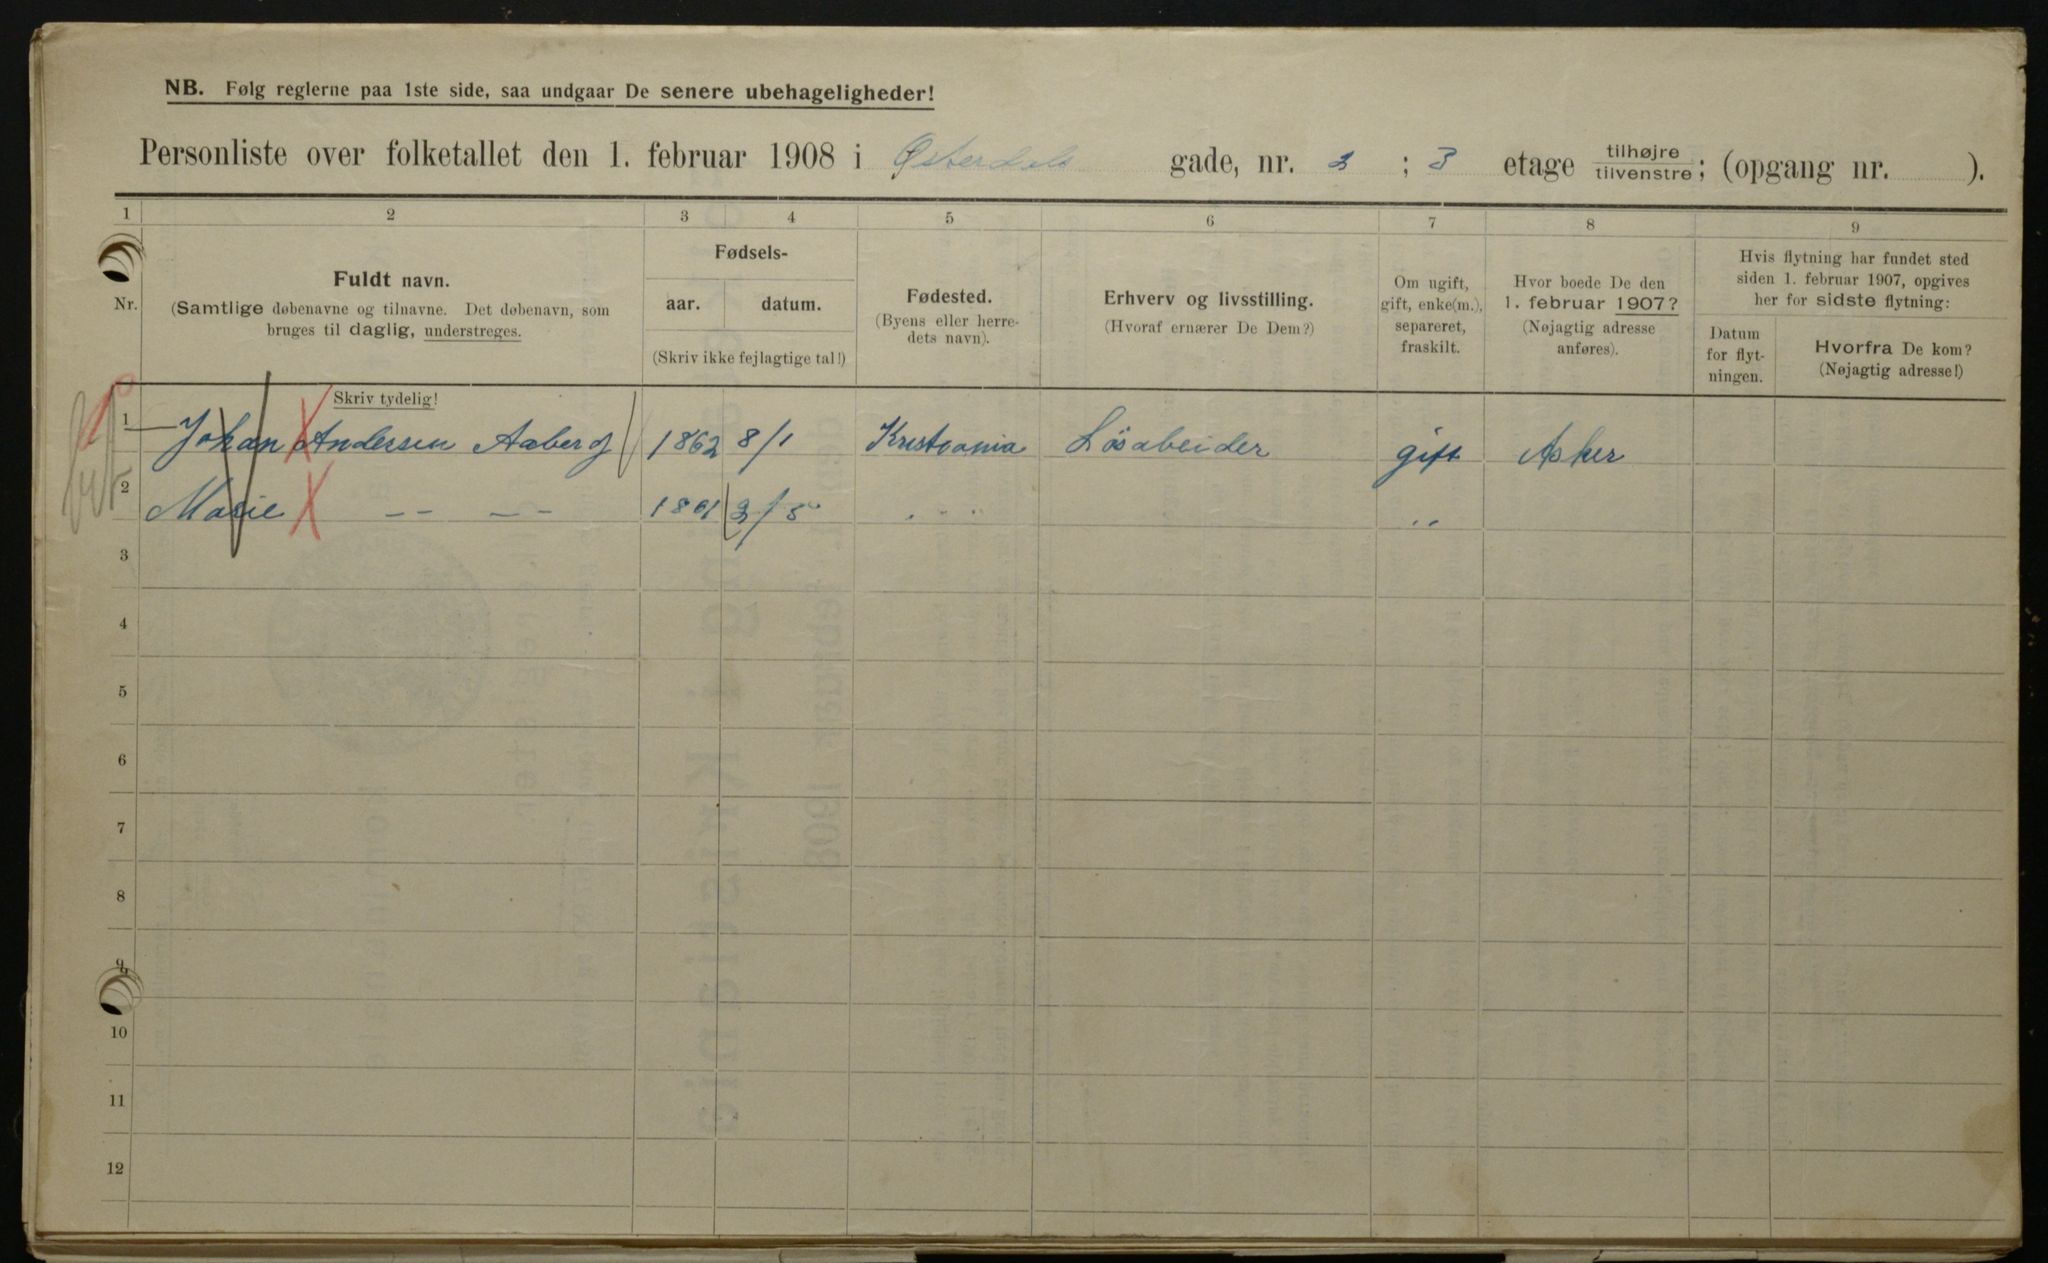 NB. Følg reglerne paa 1ste side, saa undgaar De senere ubehageligheder!
Personliste over folketallet den 1. februar 1908 i Østerdals gade, nr. 2 ; 3 etage tilhøjre/tilvenstre; (opgang nr. ).
1 2 3 4 5 6 7 8 9
Nr.
Fuldt navn.
(Samtlige døbenavne og tilnavne. Det døbenavn, som
bruges til daglig, understreges.
Skriv tydelig!
Fødsels-
aar. datum.
(Skriv ikke fejlagtige tal!)
Fødested.
(Byens eller herre-
dets navn).
Erhverv og livsstilling.
(Hvoraf ernærer De Dem?)
Om ugift,
gift, enke(m.),
separeret,
fraskilt.
Hvor boede De den
1. februar 1907?
(Nøjagtig adresse
anføres).
Hvis flytning har fundet sted
siden 1. februar 1907, opgives
her for sidste flytning:
Datum
for flyt-
ningen.
Hvorfra De kom?
(Nøjagtig adresse!)
1 Johan Andersen Aaberg 1862 8/1 Kristiania Løsabeider gift Asker
2 Marie -- -- 1861 2/5 " "
3
4
5
6
7
8
9
10
11
12